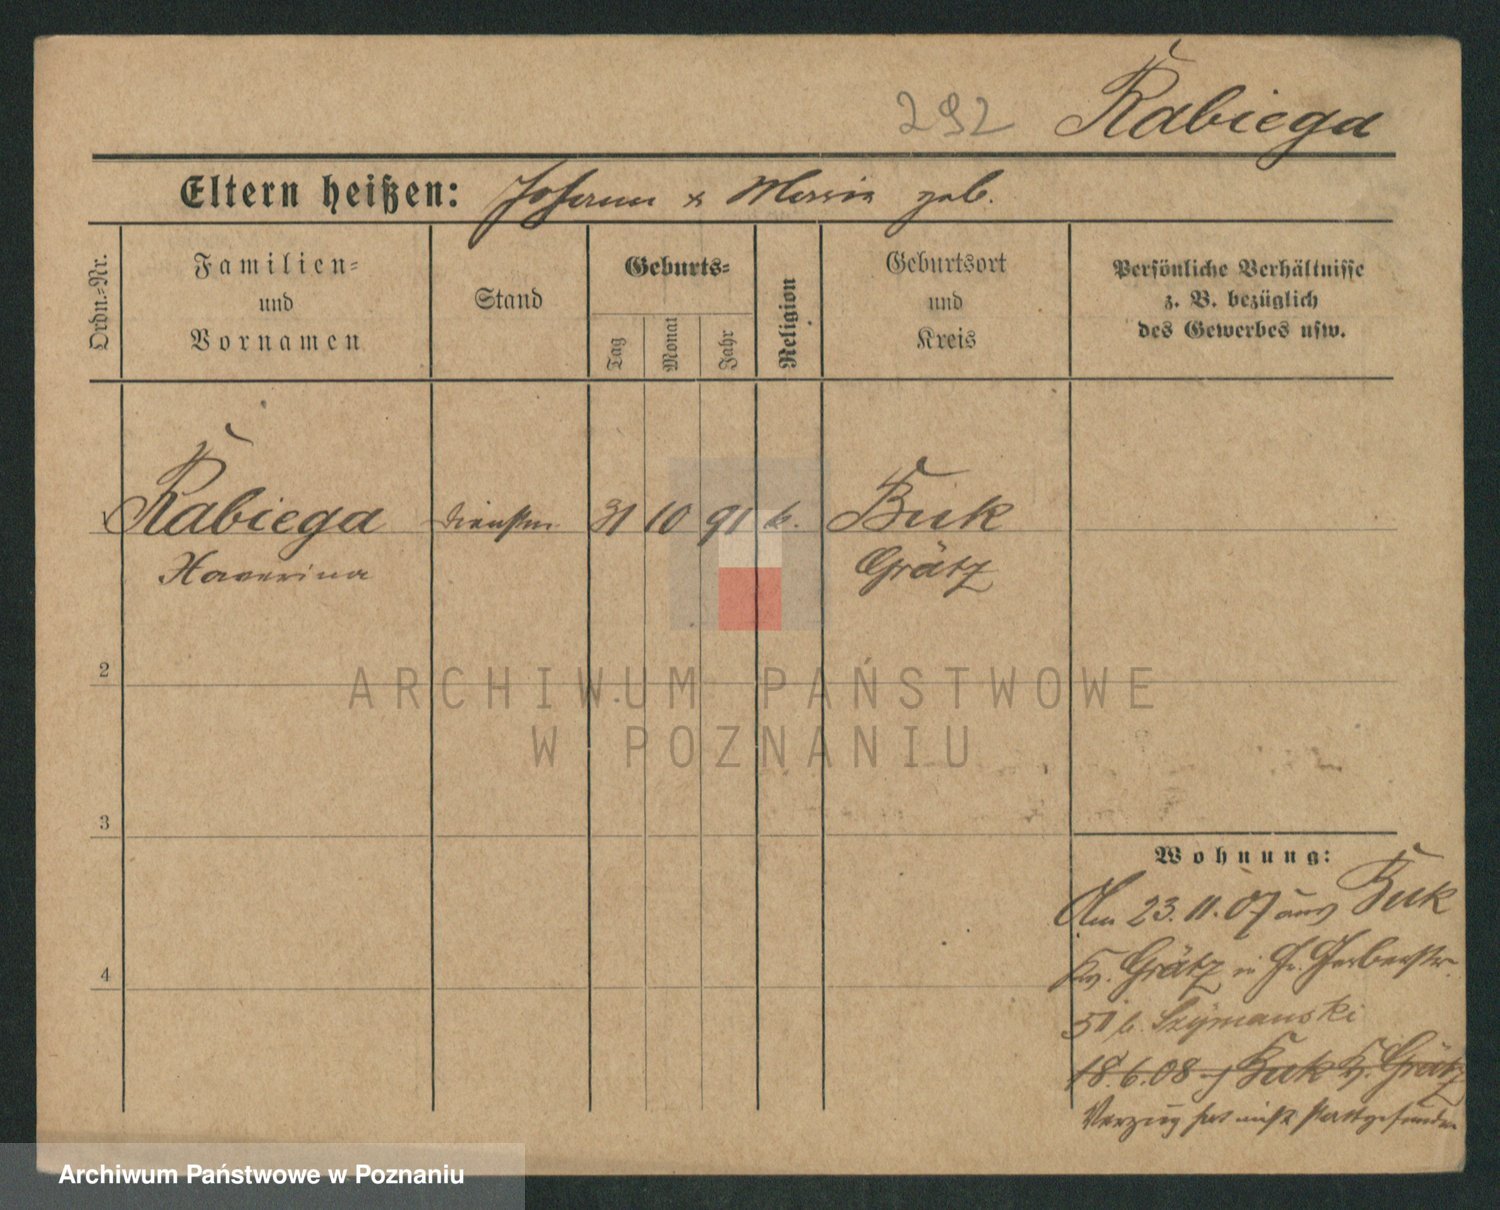 292 Rabiega
Eltern heißen: Johann & Maria geb.
Ordn.-Nr.
Familien-
und
Vornamen
Stand
Geburts-
Tag
Monat
Jahr
Religion
Geburtsort
und
Kreis
Persönliche Verhältnisse
z. B. bezüglich
des Gewerbes usw.
Rabiega 31 10 91 k. Buk
Xaverina Grätz
2
3
4
ARCHIWUM PAŃSTWOWE
W POZNANIU
Wohnung:
Am 23.11.07 aus Buk
Kr. Grätz in Gr. Gerberstr.
51 b. Szymanski
18.6.08 Buk Kr. Grätz
Verzug hat nicht stattgefunden
Archiwum Państwowe w Poznaniu